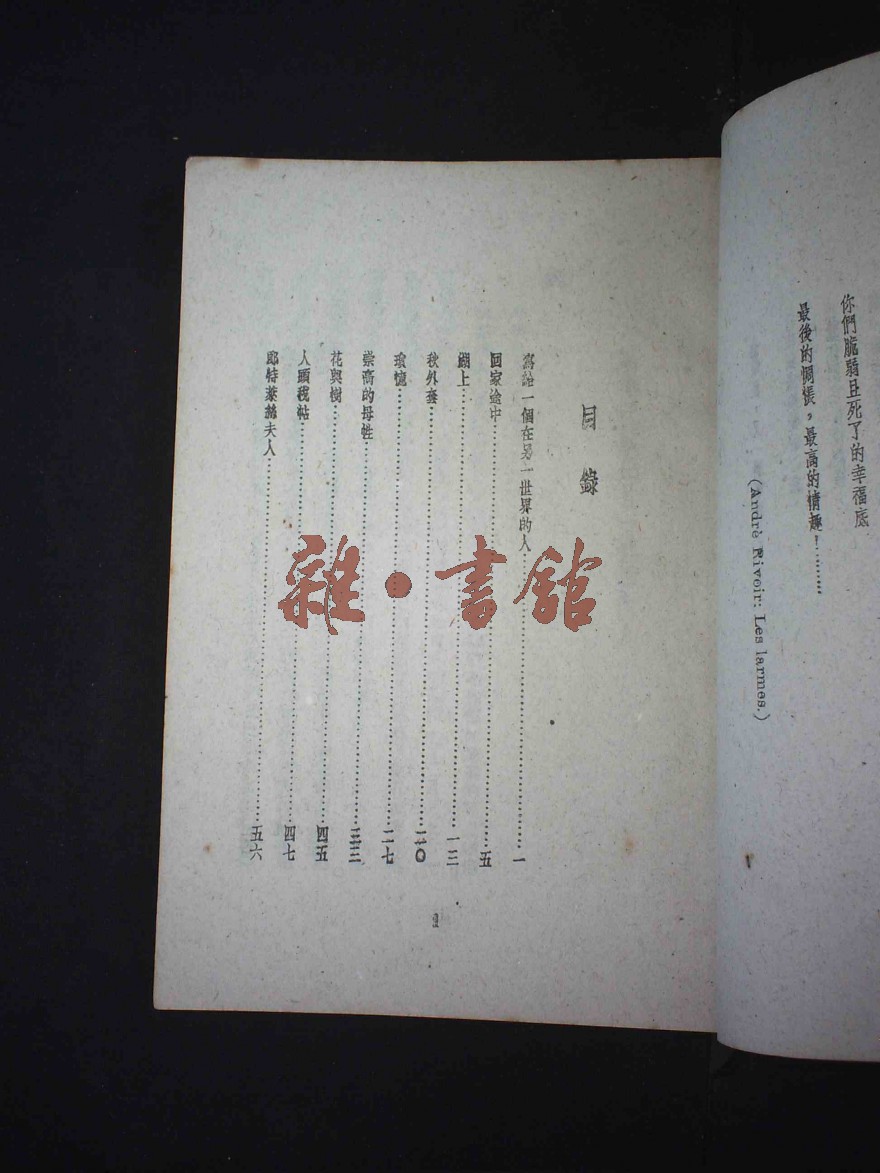 你們脆弱且死了的幸福底
最後的惆悵，最高的情趣！………
(André Rivoir: Les larmes.)
目錄
寫給一個在另一世界的人………一
回家途中………五
湖上………一三
秋外套………二〇
瑣憶………二七
崇高的母性………三三
花與樹………四五
人頭我帖………四七
郎特萊絲夫人………五六
1
雜·書館